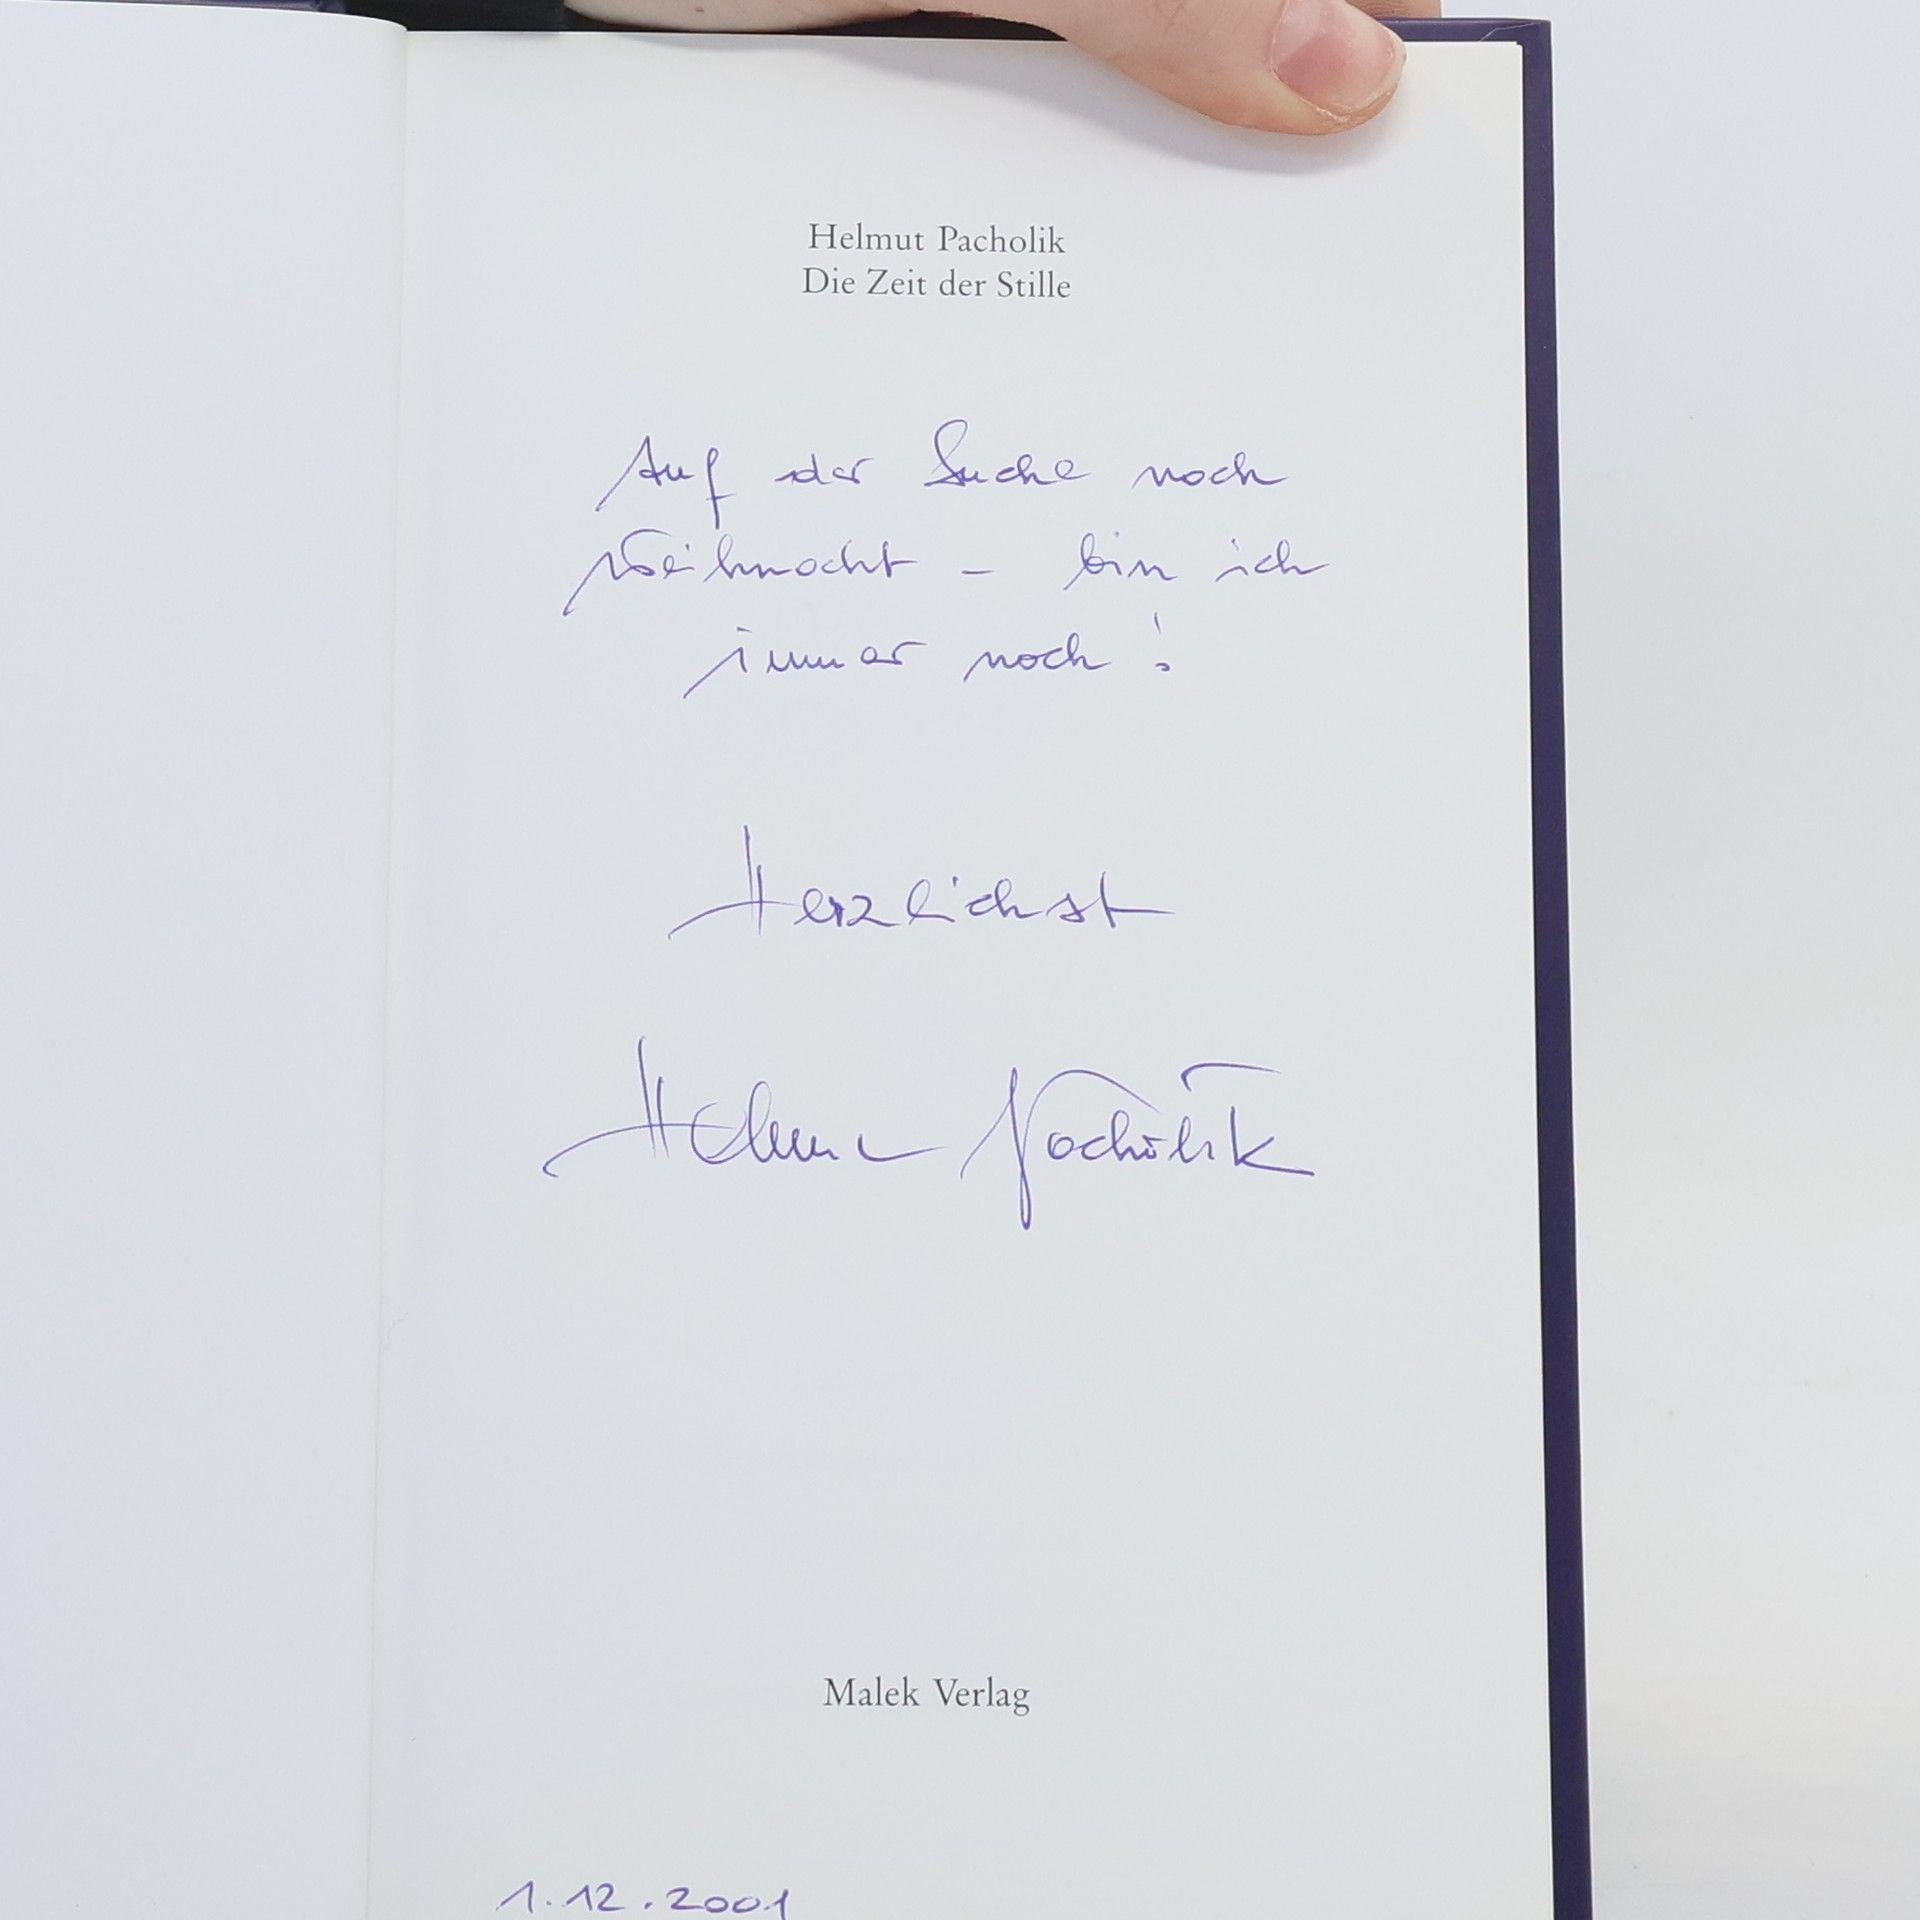 Helmut Pacholik
Die Zeit der Stille
Auf der Suche nach
Weihnacht – bin ich
immer noch!
Herzlichst
Helmut Pacholik
Malek Verlag
1.12.2001